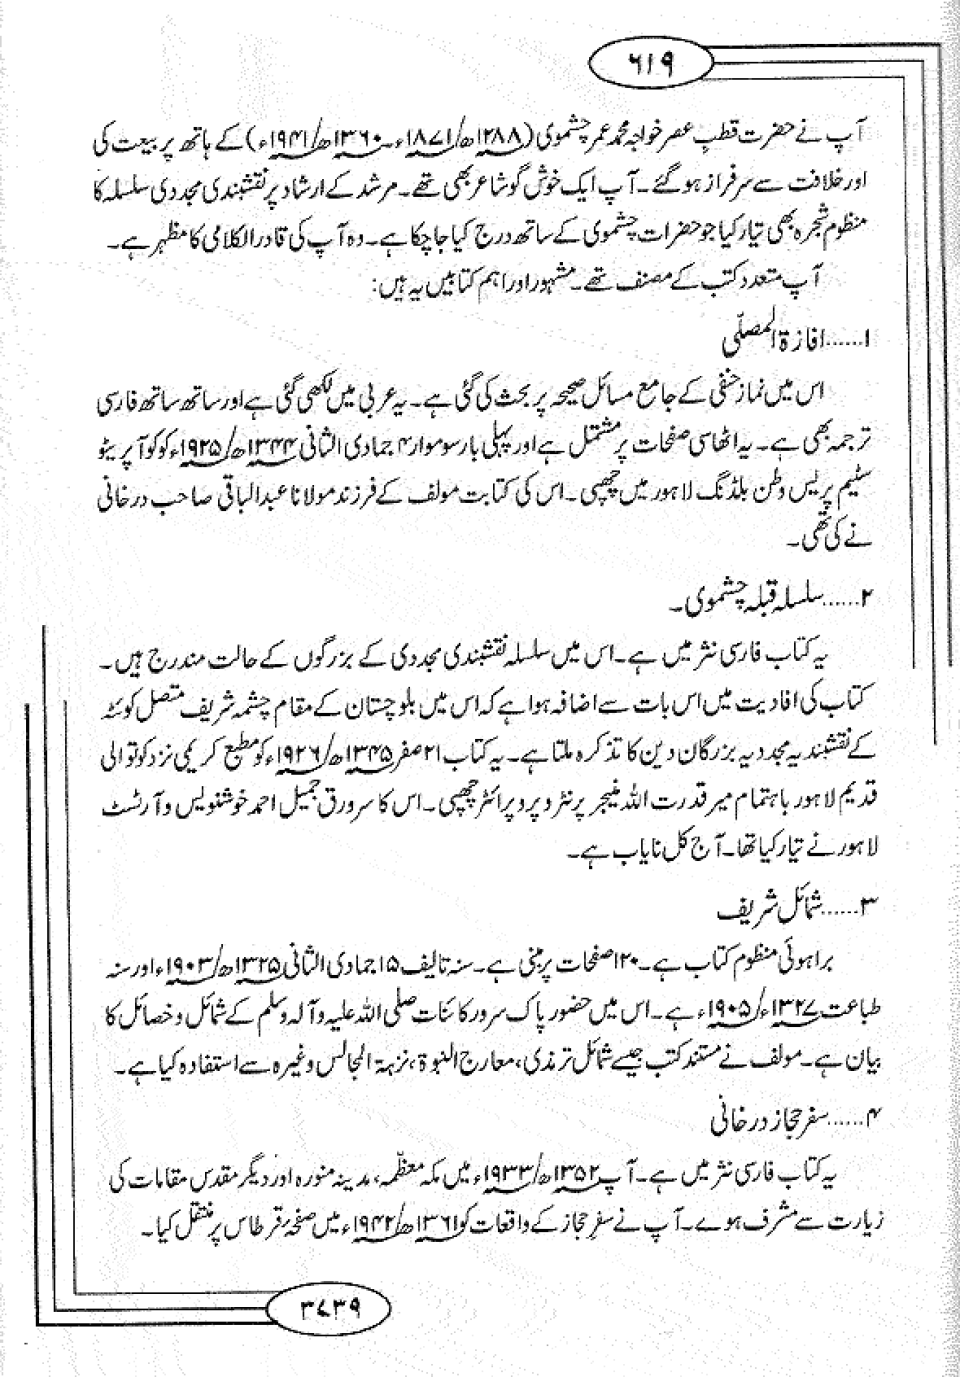 ۶۱۹
آپ نے حضرت قطبِ عصر خواجہ محمد عمر چشموی (۱۲۸۸ھ/۱۸۷۱ء۔۱۳۶۰ھ/۱۹۴۱ء) کے ہاتھ پر بیعت کی
اور خلافت سے سرفراز ہو گئے۔ آپ ایک خوش گو شاعر بھی تھے۔ مرشد کے ارشاد پر نقشبندی مجددی سلسلہ کا
منظوم شجرہ بھی تیار کیا جو حضرات چشموی کے ساتھ درج کیا جا چکا ہے۔ وہ آپ کی قادر الکلامی کا مظہر ہے۔
آپ متعدد کتب کے مصنف تھے۔ مشہور اور اہم کتابیں یہ ہیں:
۱......افازۃ المصلّی
اس میں نماز حنفی کے جامع مسائل صحیحہ پر بحث کی گئی ہے۔ یہ عربی میں لکھی گئی ہے اور ساتھ ساتھ فارسی
ترجمہ بھی ہے۔ یہ اٹھاسی صفحات پر مشتمل ہے اور پہلی بار سوموار ۴ جمادی الثانی ۱۳۴۴ھ/۱۹۲۵ء کو کوآپریٹو
سٹیم پریس وطن بلڈنگ لاہور میں چھپی۔ اس کی کتابت مولف کے فرزند مولانا عبدالباقی صاحب درخانی
نے کی تھی۔
۲......سلسلہ قبلہ چشموی۔
یہ کتاب فارسی نثر میں ہے۔ اس میں سلسلہ نقشبندی مجددی کے بزرگوں کے حالت مندرج ہیں۔
کتاب کی افادیت میں اس بات سے اضافہ ہوا ہے کہ اس میں بلوچستان کے مقام چشمہ شریف متصل کوئٹہ
کے نقشبندیہ مجددیہ بزرگان دین کا تذکرہ ملتا ہے۔ یہ کتاب ۲۱ صفر ۱۳۴۵ھ/۱۹۲۶ء کو مطبع کریمی نزد کوتوالی
قدیم لاہور باہتمام میر قدرت اللہ منیجر پرنٹر و پروپرائٹر چھپی۔ اس کا سرورق جمیل احمد خوشنویس و آرٹسٹ
لاہور نے تیار کیا تھا۔ آج کل نایاب ہے۔
۳......شمائل شریف
براہوئی منظوم کتاب ہے۔ ۱۲۰ صفحات پر مبنی ہے۔ سنہ تالیف ۱۵ جمادی الثانی ۱۳۲۵ھ/۱۹۰۳ء اور سنہ
طباعت ۱۳۲۷ء/۱۹۰۵ء ہے۔ اس میں حضور پاک سرور کائنات صلی اللہ علیہ وآلہ وسلم کے شمائل و خصائل کا
بیان ہے۔ مولف نے مستند کتب جیسے شمائل ترمذی، معارج النبوۃ، نزہۃ المجالس وغیرہ سے استفادہ کیا ہے۔
۴......سفر حجاز درخانی
یہ کتاب فارسی نثر میں ہے۔ آپ ۱۳۵۲ھ/۱۹۳۳ء میں مکہ معظمّہ، مدینہ منورہ اور دیگر مقدس مقامات کی
زیارت سے مشرف ہوے۔ آپ نے سفرِ حجاز کے واقعات کو ۱۳۶۱ھ/۱۹۴۲ء میں صفحۂ قرطاس پر منتقل کیا۔
۳۷۳۹